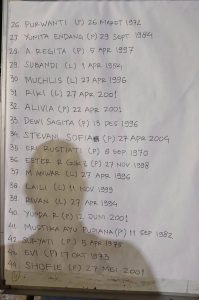 26. PURWANTI (P) 26 MARET 1972
27. YUNITA ENDANG (P) 29 SEPT 1984
28. A REGITA (P) 5 APR 1997
29. SUBANDI (L) 1 APR 1954
30. MUCHLIS (L) 27 APR 1996
31. RIKI (L) 27 APR 2001
32. ALIVIA (P) 22 APR 2001
33. DEWI SAGITA (P) 13 DES 1996
34. STEVANI SOFIA (P) 27 APR 2004
35. SRI RUSTIATI (P) 8 SEP 1970
36. ESTER R (P) 27 NOV 1998
37. M ANWAR (L) 27 APR 1996
38. LAILI (L) 11 NOV 1999
39. REVAN (L) 27 APR 1994
40. YUNDA R (P) 12 JUNI 2001
41. MUSTIKA AYU (P) 11 SEP 1982
42. SURYATI (P) 5 APR 1975
43. EVI (P) 17 OKT 1973
44. SHOFIE (P) 27 MEI 2001